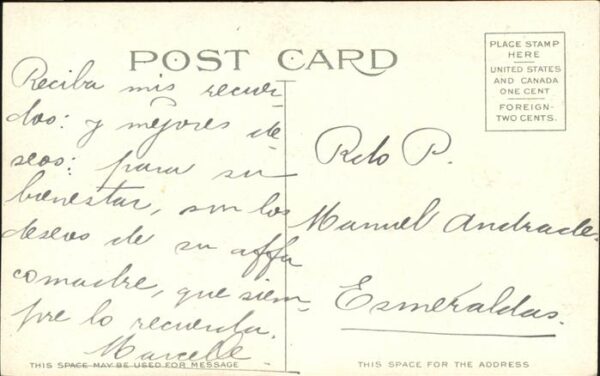 POST CARD
PLACE STAMP
HERE
UNITED STATES
AND CANADA
ONE CENT
FOREIGN-
TWO CENTS.
Reciba mis recuer-
dos: y mejores de-
seos: para su
bienestar, son los
deseos de su affa
comadre, que siem-
pre lo recuerda.
Marcelle
THIS SPACE MAY BE USED FOR MESSAGE
Rdo P.
Manuel Andrade.
Esmeraldas.
THIS SPACE FOR THE ADDRESS